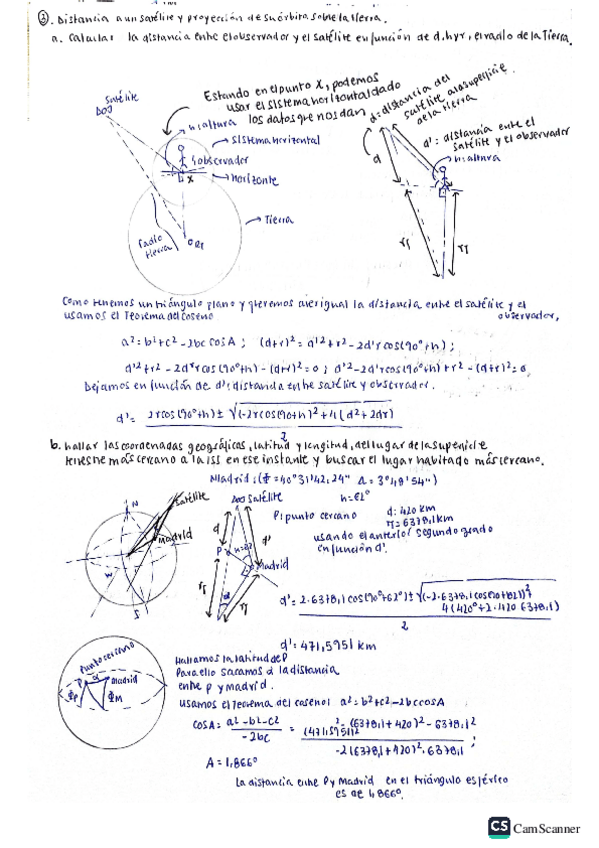 ②. Distancia a un satélite y proyección de su órbita sobre la Tierra.
a. Calcular la distancia entre el observador y el satélite en función de d, h y r, el radio de la Tierra.
satélite
Estando en el punto X, podemos
usar el sistema horizontal dado
los datos que nos dan
h: altura
sistema horizontal
observador
horizonte
X
Tierra
radio
tierra
d = distancia del
satélite a la superficie
de la tierra
d': distancia entre el
satélite y el observador
h: altura
d
rT
rT
Como tenemos un triángulo plano y queremos averiguar la distancia entre el satélite y el
observador,
usamos el Teorema del coseno
a²=b²+c²-2bc cosA ; (d+r)²=d'²+r²-2d'r cos(90°+h) ;
d'²+r²-2d'r cos(90°+h)-(d+r)²=0 ; d'²-2d'r cos(90°+h)+r²-(d+r)²=0
Dejamos en función de d': distancia entre satélite y observador.
d'= 2r cos(90°+h) ± √(-2r cos(90+h)²+4(d²+2dr)
2
b. hallar las coordenadas geográficas, latitud y longitud, del lugar de la superficie
terrestre más cercano a la ISS en ese instante y buscar el lugar habitado más cercano.
Madrid: (Φ=40°31'42,24" Λ=3°49'54")
N
satélite
Madrid
W
S
satélite
h=62°
P: punto cercano
d: 420 km
rT=6378,1km
usando el anterior segundo grado
en función d'.
d
d'
P
h=62°
Madrid
rT
rT
α
d'= 2·6378,1 cos(90°+62°) ± √(-2·6378,1 cos(90+62))²
4(420²+2·420 6378,1)
2
d'=471,5951 km
Punto cercano
α
Madrid
ΦP
ΦM
Hallamos la latitud de P
Para ello sacamos α la distancia
entre P y Madrid.
usamos el Teorema del coseno: a²=b²+c²-2bc cosA
cosA= a²-b²-c² = (471,5951)²-(6378,1+420)²-6378,1² ;
-2bc -2(6378,1+420)·6378,1
A=1,866°
La distancia entre P y Madrid en el triángulo esférico
es de 1,866°.
CS CamScanner